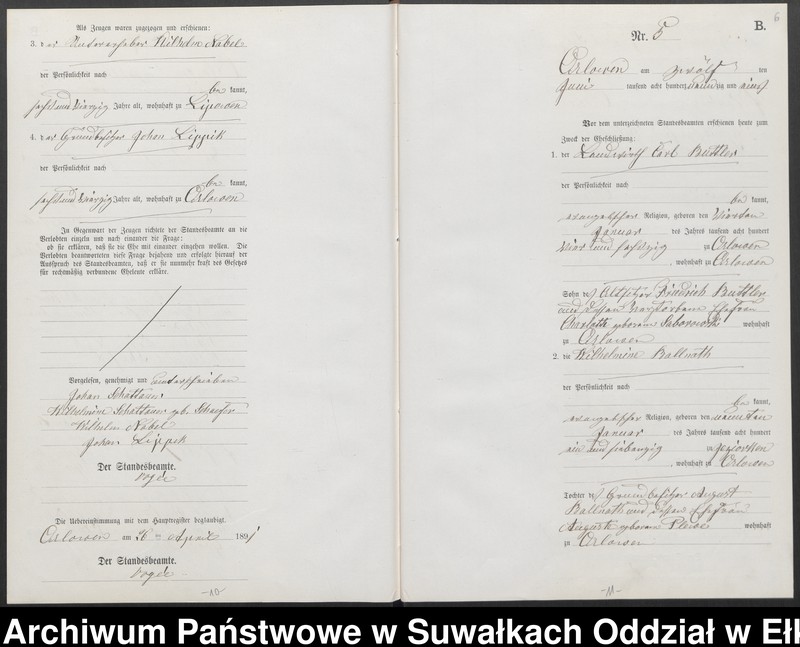 Als Zeugen waren zugezogen und erschienen:
3. der Unterhaber Wilhelm Nabel
der Persönlichkeit nach
be kannt,
sechsundvierzig Jahre alt, wohnhaft zu Lipowen
4. der Grundbesitzer Johan Lippik
der Persönlichkeit nach
be kannt,
sechsundvierzig Jahre alt, wohnhaft zu Orlowen
In Gegenwart der Zeugen richtete der Standesbeamte an die
Verlobten einzeln und nach einander die Frage:
ob sie erklären, daß sie die Ehe mit einander eingehen wollen. Die
Verlobten beantworteten diese Frage bejahend und erfolgte hierauf der
Ausspruch des Standesbeamten, daß er sie nunmehr kraft des Gesetzes
für rechtmäßig verbundene Eheleute erkläre.
Vorgelesen, genehmigt und unterschrieben
Johan Schattauer
Wilhelmine Schattauer geb. Schaefer
Wilhelm Nabel
Johan Lippik
Der Standesbeamte.
Die Uebereinstimmung mit dem Hauptregister beglaubigt.
Orlowen am April 1891
Der Standesbeamte.
-10-
6
B.
Nr. 5
Orlowen am zwölf ten
Juni tausend acht hundert neunzig und eins
Vor dem unterzeichneten Standesbeamten erschienen heute zum
Zweck der Eheschließung:
1. der Landwirth Carl Buttler
der Persönlichkeit nach
be kannt,
evangelischer Religion, geboren den vierten
Januar des Jahres tausend acht hundert
vier und sechszig zu Orlowen
, wohnhaft zu Orlowen
Sohn des Altsitzer Friedrich Buttler
und dessen verstorbene Ehefrau
Charlotte geborene Saborowski wohnhaft
zu Orlowen
2. die Wilhelmine Ballnath
der Persönlichkeit nach
be kannt,
evangelischer Religion, geboren den neunten
Januar des Jahres tausend acht hundert
ein und siebenzig zu
, wohnhaft zu Orlowen
Tochter des Grundbesitzer August
Ballnath und dessen Ehefrau
Auguste geborene wohnhaft
zu Orlowen
-11-
Archiwum Państwowe w Suwałkach Oddział w Ełk